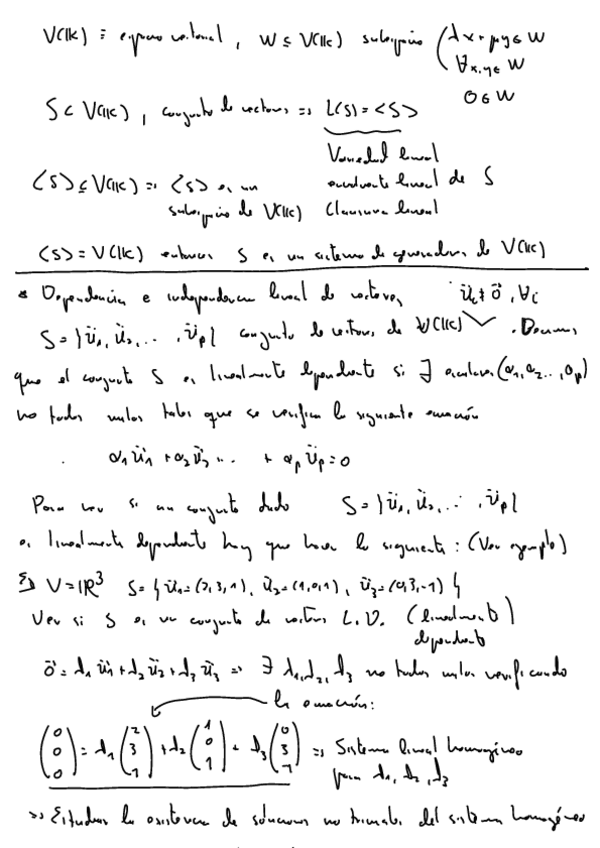 V(K) ≡ espacio vectorial , W ≤ V(K) subespacio ( λx + μy ∈ W
∀x,y ∈ W
0 ∈ W
S ⊂ V(K) , conjunto de vectores => L(S) = <S>
Variedad lineal
<S> ≤ V(K) => <S> es un envolvente lineal de S
subespacio de V(K) Clausura lineal
<S> = V(K) entonces S es un sistema de generadores de V(K)
* Dependencia e independencia lineal de vectores u⃗i ≠ o⃗ , ∀i
S = {u⃗1, u⃗2, ... , u⃗p} conjunto de vectores de V(K) . Decimos
que el conjunto S es linealmente dependiente si ∃ escalares (α1, α2 .. , αp)
no todos nulos tales que se verifica la siguiente ecuación
α1 u⃗1 + α2 u⃗2 ... + αp u⃗p = 0
Para ver si un conjunto dado S = {u⃗1, u⃗2, ... , u⃗p}
es linealmente dependiente hay que hacer lo siguiente : (Ver ejemplo)
Ej V = IR³ S = { u⃗1 = (2, 3, 1), u⃗2 = (1, 0, 1), u⃗3 = (0, 3, -1) }
Ver si S es un conjunto de vectores L.D. (linealmente)
dependiente
o⃗ = λ1 u⃗1 + λ2 u⃗2 + λ3 u⃗3 => ∃ λ1, λ2, λ3 no todos nulos verificando
la ecuación:
(0 0 0) = λ1 (2 3 1) + λ2 (1 0 1) + λ3 (0 3 -1) => Sistema lineal homogéneo
para λ1, λ2, λ3
=> Estudiar la existencia de soluciones no triviales del sistema homogéneo